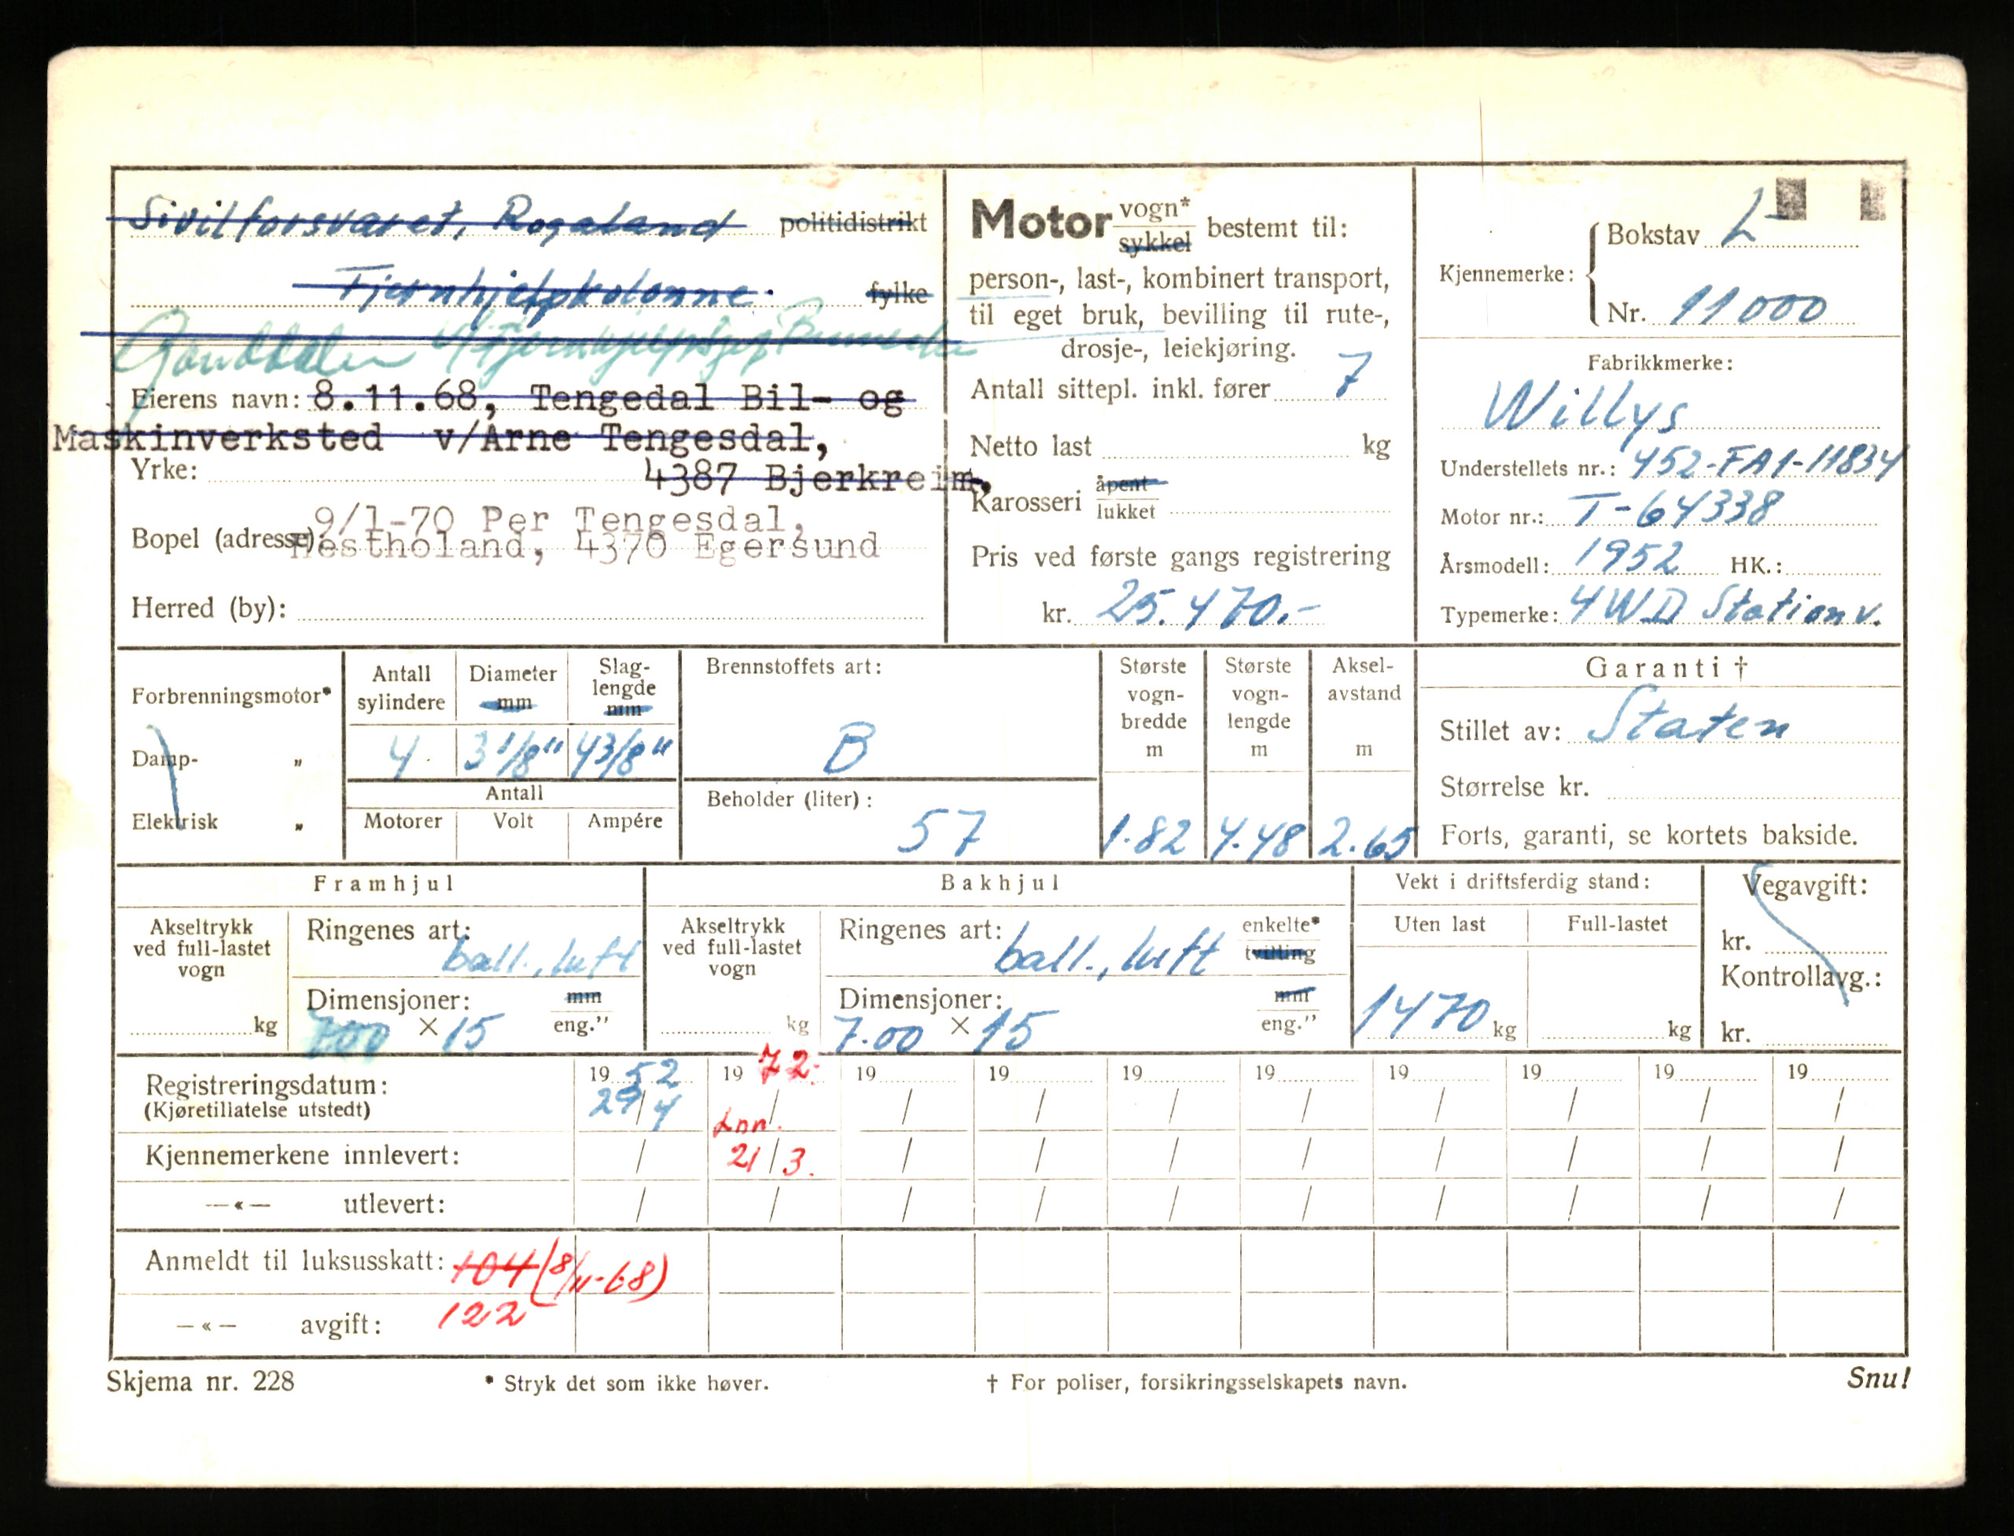 Sivilforsvaret, Rogaland politidistrikt
Fjernhjelpkolonne. fylke
Ganddalen
Eierens navn: 8.11.68, Tengedal Bil- og
Maskinverksted v/Arne Tengesdal,
Yrke: 4387 Bjerkreim.
9/1-70 Per Tengesdal,
Bopel (adresse) Hestholand, 4370 Egersund
Herred (by):
Motor vogn* sykkel bestemt til:
person-, last-, kombinert transport,
til eget bruk, bevilling til rute-,
drosje-, leiekjøring.
Antall sittepl. inkl. fører 7
Netto last kg
Karosseri åpent lukket
Pris ved første gangs registrering
kr. 25.470.-
Kjennemerke: Bokstav L
Nr. 11000
Fabrikkmerke:
Willys
Understellets nr.: 452-FA1-11834
Motor nr.: T-64338
Årsmodell: 1952 HK.:
Typemerke: 4WD Station v.
Forbrenningsmotor*
Damp- „
Elektrisk „
Antall sylindere
4
Diameter mm
3 1/8"
Slag-lengde mm
4 3/8"
Antall
Motorer Volt Ampére
Brennstoffets art:
B
Beholder (liter):
57
Største vogn-bredde m
1.82
Største vogn-lengde m
4.48
Aksel-avstand m
2.65
Garanti †
Stillet av: Staten
Størrelse kr.
Forts, garanti, se kortets bakside.
Framhjul
Akseltrykk ved full-lastet vogn
kg
Ringenes art:
ball., luft
Dimensjoner: mm
7.00 × 15 eng."
Bakhjul
Akseltrykk ved full-lastet vogn
kg
Ringenes art: enkelte*
ball., luft tvilling
Dimensjoner: mm
7.00 × 15 eng."
Vekt i driftsferdig stand:
Uten last Full-lastet
1470 kg kg
Vegavgift:
kr.
Kontrollavg.:
kr.
Registreringsdatum: 19 52 19 72. 19 19 19 19 19 19 19 19
(Kjøretillatelse utstedt) 29/4 / / / / / / / / /
Inn.
Kjennemerkene innlevert: / 21/3. / / / / / / / /
—«— utlevert: / / / / / / / / / /
Anmeldt til luksusskatt: 104 (8/11-68)
—«— avgift: 122
Skjema nr. 228 * Stryk det som ikke høver. † For poliser, forsikringsselskapets navn. Snu!